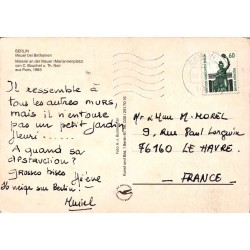 BERLIN
Mauer bei Bethanien
Malerei an der Mauer (Mariannenplatz)
von C. Bouchet u. Th. Noir
aus Paris, 1985
60
Il ressemble à
tous les autres murs,
mais il n'entoure
pas un petit jardin
fleuri....
A quand sa
destruction?
Grosses bises
Hélène
Il neige sur Berlin!
Muriel
Mr x Mme M. MOREL
9, Rue Paul Langevin
76160 LE HAVRE.
FRANCE